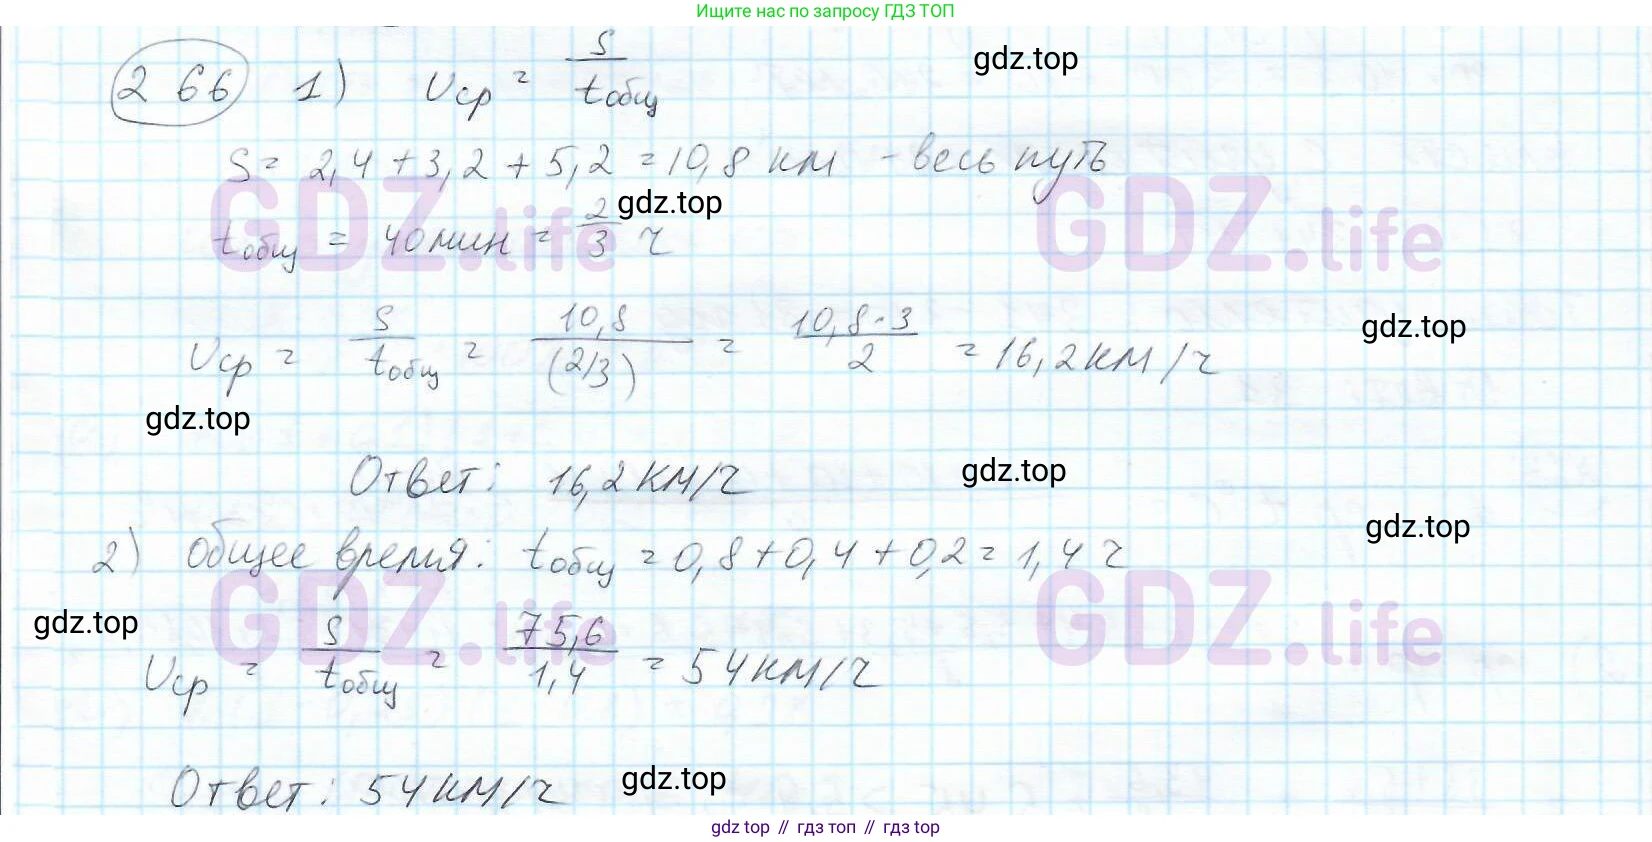 Ищите нас по запросу ГДЗ ТОП
266 1) υср = S/tобщ
gdz.top
S = 2,4 + 3,2 + 5,2 = 10,8 км - весь путь
GDZ.life gdz.top GDZ.life
tобщ = 40 мин = 2/3 ч
υср = S/tобщ = 10,8/(2/3) = 10,8·3/2 = 16,2 км/ч
gdz.top
gdz.top
Ответ: 16,2 км/ч
gdz.top
gdz.top
2) общее время: tобщ = 0,8 + 0,4 + 0,2 = 1,4 ч
GDZ.life GDZ.life
gdz.top
υср = S/tобщ = 75,6/1,4 = 54 км/ч
Ответ: 54 км/ч
gdz.top
gdz top // гдз топ // gdz.top